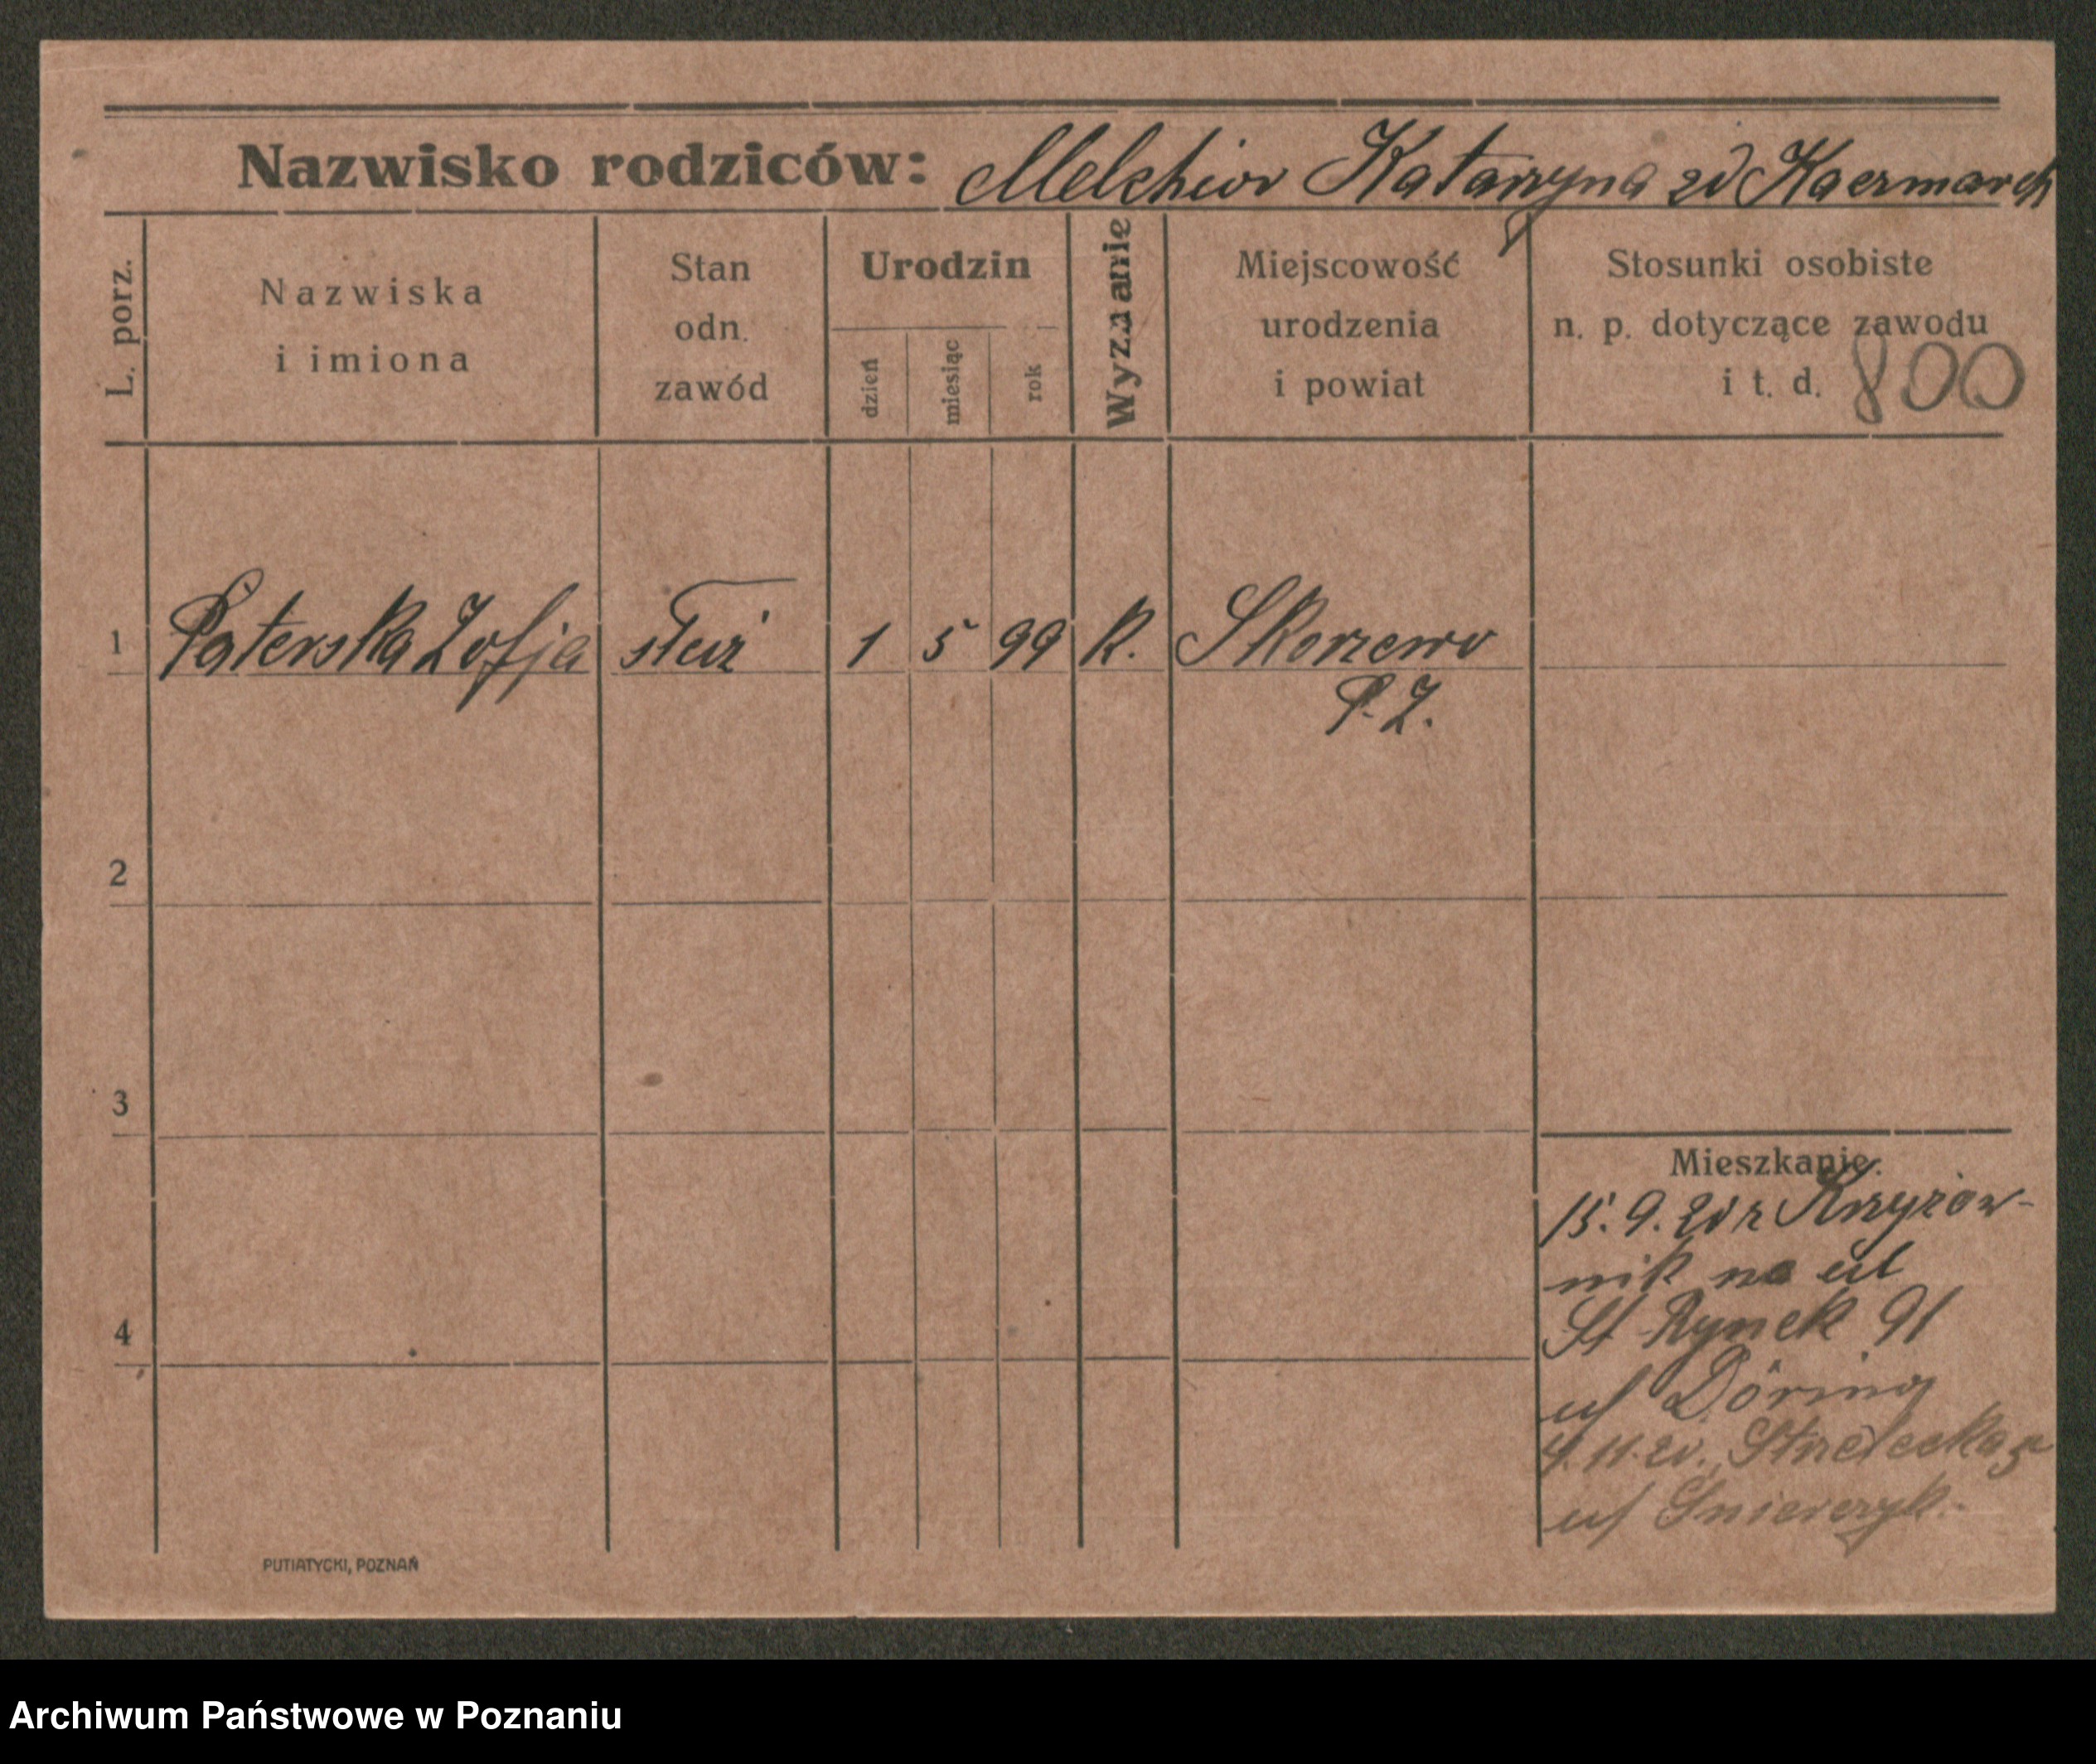 Nazwisko rodziców: Melchior Katarzyna zd Kaczmarek
L. porz.
Nazwiska
i imiona
Stan
odn.
zawód
Urodzin
dzień
miesiąc
rok
Wyznanie
Miejscowość
urodzenia
i powiat
Stosunki osobiste
n. p. dotyczące zawodu
i t. d. 800
1 Paterska Zofja służ 1 5 99 k. Skorzewo
P. Z.
2
3
4
Mieszkanie:
15. 9. 20 z Krzyżow-
nik na ul
St Rynek 91
u/ Döring
4. 11. 20. Strzelecka
u/
PUTIATYCKI, POZNAŃ
Archiwum Państwowe w Poznaniu